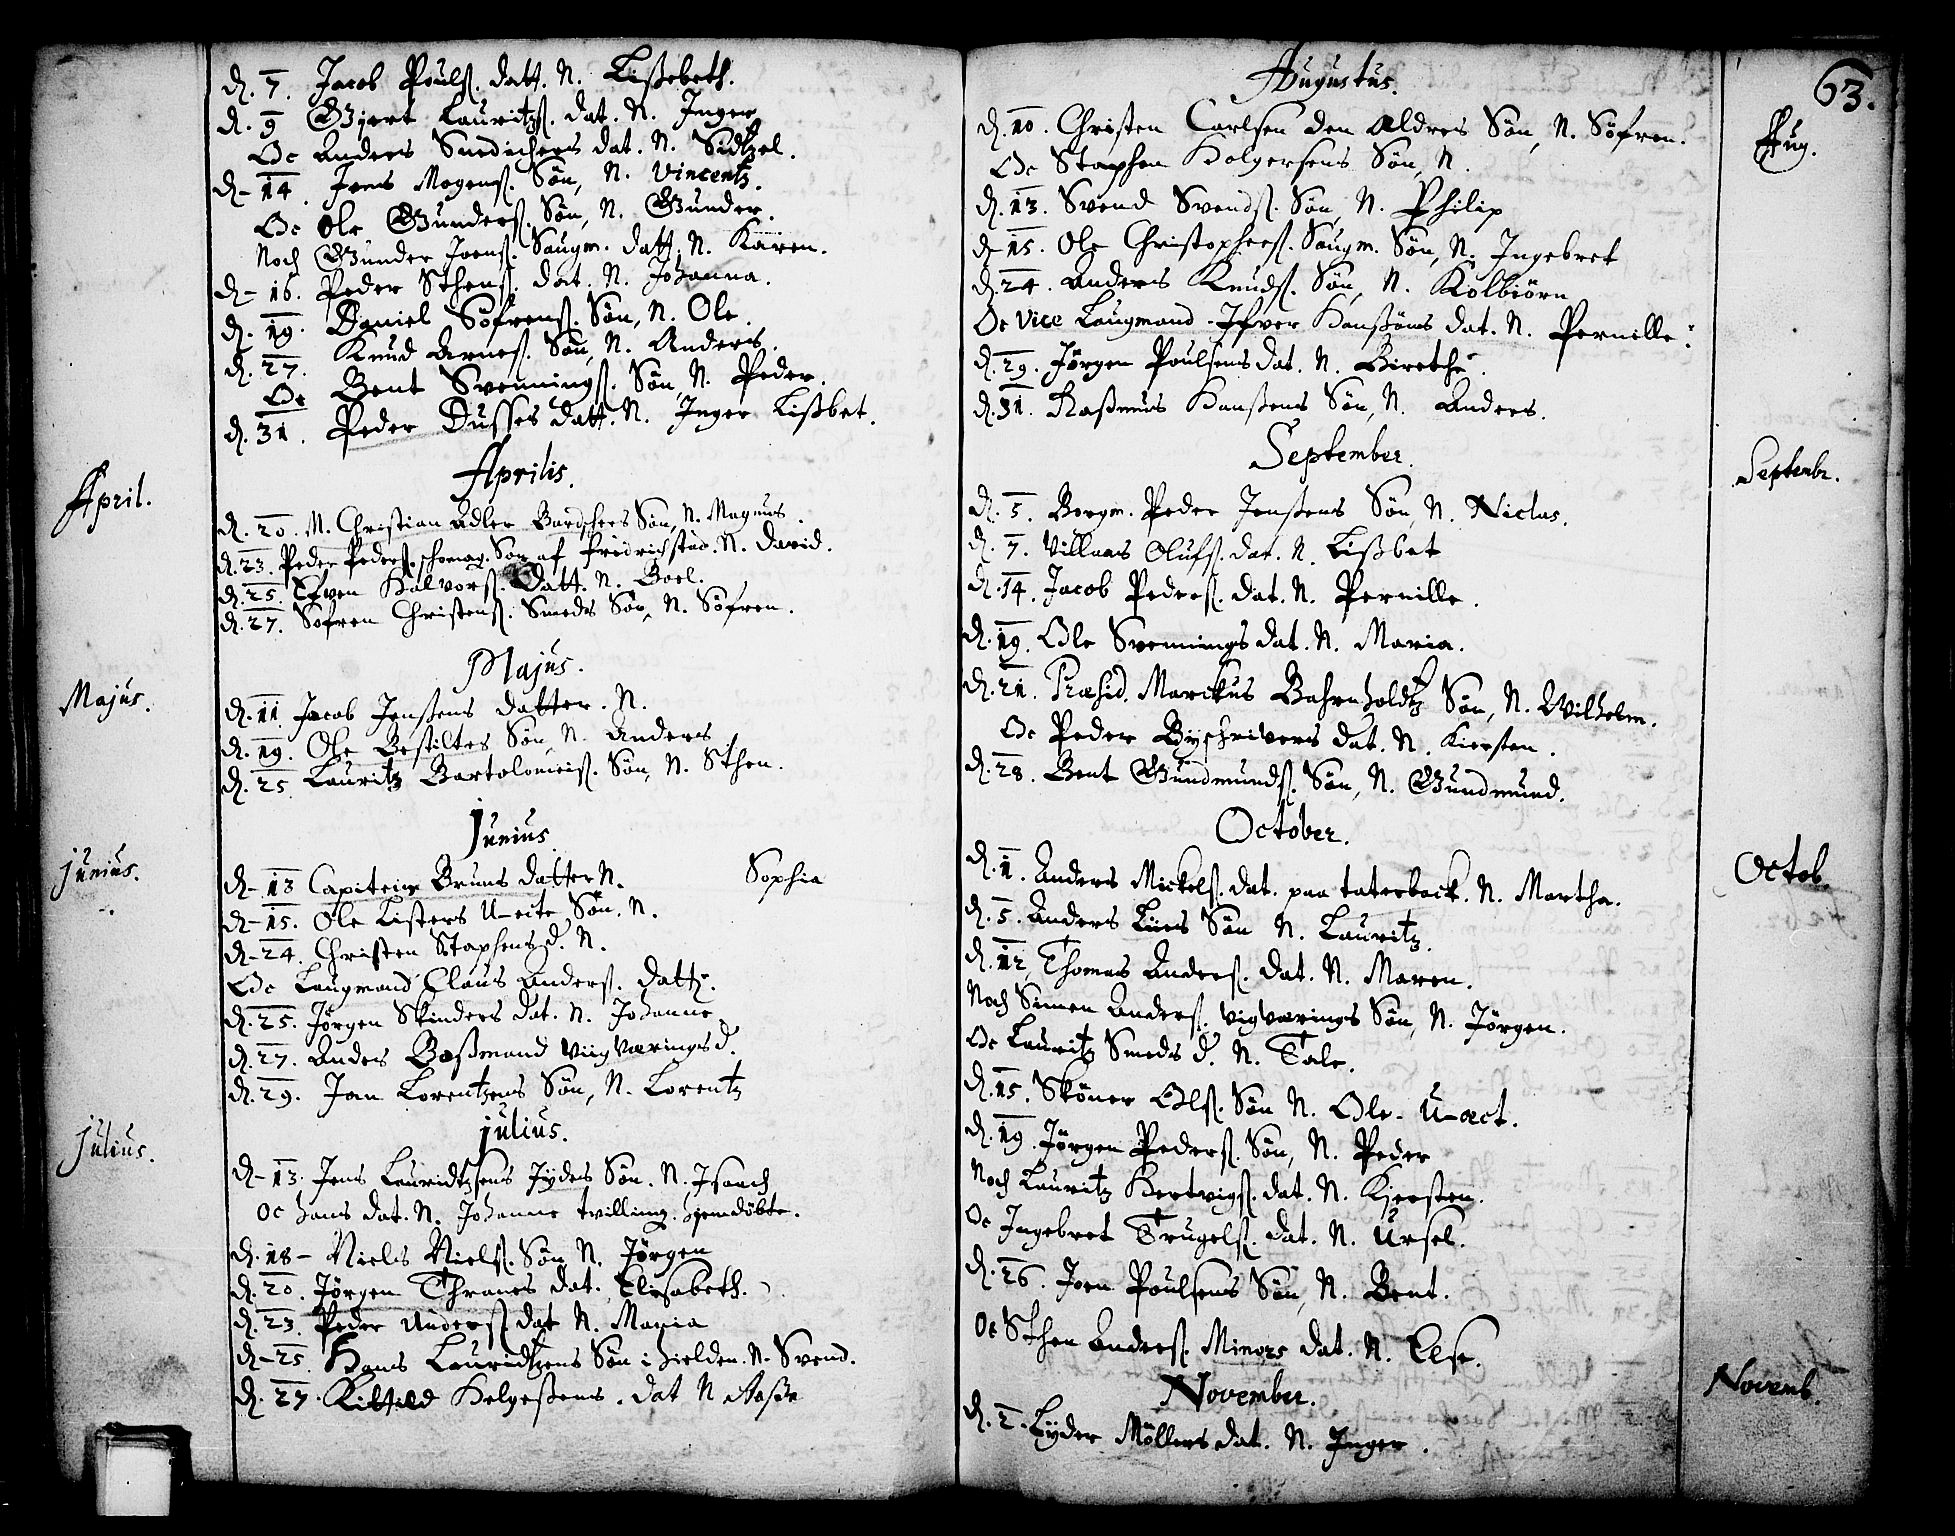 d. 7. Jacob Pouls. datt. N. Lißebeth.
d. 9 Gjert Lauritzs. dat. N. Inger
Oc Anders Snedichers dat. N. Sidtzel.
d. 14. Jens Mogens. Søn, N. Vincentz.
Oc Ole Gunders. Søn, N. Gunder.
Noch Gunder Joens. Saugm. datt. N. Karen.
d. 16. Peder Sthens. dat. N. Johanna.
d. 19. Daniel Søfrens. Søn, N. Ole.
d. 27. Knud Arnes. Søn, N. Anders.
Oc Bent Svennings. Søn, N. Peder.
d. 31. Peder Dusses datt. N. Inger Lißbet.
Aprilis.
April.
d. 20. M. Christian Adler Bardscheers Søn, N. Magnus.
d. 23. Peder Peders. schomag. Søn af Fridrichstad. N. David.
d. 25. Efven Halvors. Datt. N. Boel.
d. 27. Søfren Christens. Smeds Søn, N. Søfren.
Majus.
Majus.
d. 11 Jacob Jenßens datter. N.
d. 19. Ole Bestiltes Søn, N. Anders
d. 25 Lauritz Bartolomeis. Søn, N. Sthen.
Junius
Junius.
d. 13 Capitein Bruns datter N. Sophia
d. 15. Ole Listers U-ecte Søn. N.
d. 24. Christen Staphens d. N.
Oc Laugmand Claus Anders. datt.
d. 25. Jørgen Skinders dat. N. Johanne
d. 27. Anders Baßmand Viigværings d.
d. 29. Jan Lorentzens Søn, N. Lorentz
Julius.
Julius.
d. 13. Jens Lauridtzens Jydes Søn. N. Isaach
oc hans dat. N. Johanne tvilling. hjemdøbte.
d. 18 - Niels Niels. Søn N. Jørgen
d. 20. Jørgen Thranes dat. Elisabeth.
d. 23. Peder Anders. dat N. Maria
d. 25. Hans Lauridtzens Søn i hielden. N. Svend.
d. 27. Kittild Helgeßens. dat N Aaße
63.
Augustus.
Aug.
d. 10. Christen Carlsen den Ældres Søn, N. Søfren.
Oc Staphen Holgersens Søn, N.
d. 13. Svend Svends. Søn, N. Philip
d. 15. Ole Christophers. Saugm. Søn, N. Ingebret
d. 24. Anders Knuds. Søn, N. Kolbiørn
Oc Vice Laugmand Ifver Hanßøns dat. N. Pernille.
d. 29. Jørgen Poulsens dat. N. Birethe.
d. 31. Raßmus Hanßens Søn, N. Anders.
September.
Septembr.
d. 5. Borgm. Peder Jenßens Søn, N. Niclas.
d. 7. Villums Olufs. dat. N. Lißbet
d. 14. Jacob Peders. dat. N. Pernille.
d. 19. Ole Svennings dat. N. Maria.
d. 21. Præsid. Marckus Bahrnholdtz Søn, N. Wilhelm.
Oc Peder Byschrivers dat. N. Kiersten.
d. 28. Bent Gundmunds. Søn, N. Gundmund.
October.
Octob.
d. 1. Anders Mickels. dat. paa taterback. N. Martha.
d. 5. Anders Liies Søn N. Lauritz.
d. 12. Thomas Anders. dat. N. Maren.
Noch Simen Anders. Vigværings Søn, N. Jørgen.
Oc Lauritz Smeds d. N. Tale.
d. 15. Skøner Ols. Søn N. Ole. U-æct.
d. 19. Jørgen Peders. Søn, N. Peder
Noch Lauritz Hertvigs. dat. N. Kjersten.
Oc Ingebret Trugels. dat. N. Ursel.
d. 26. Joen Poulsens Søn, N. Bent.
Oc Sthen Anders. Minors dat. N. Else.
November.
Novemb.
d. 2. Lyder Møllers dat. N. Inger.